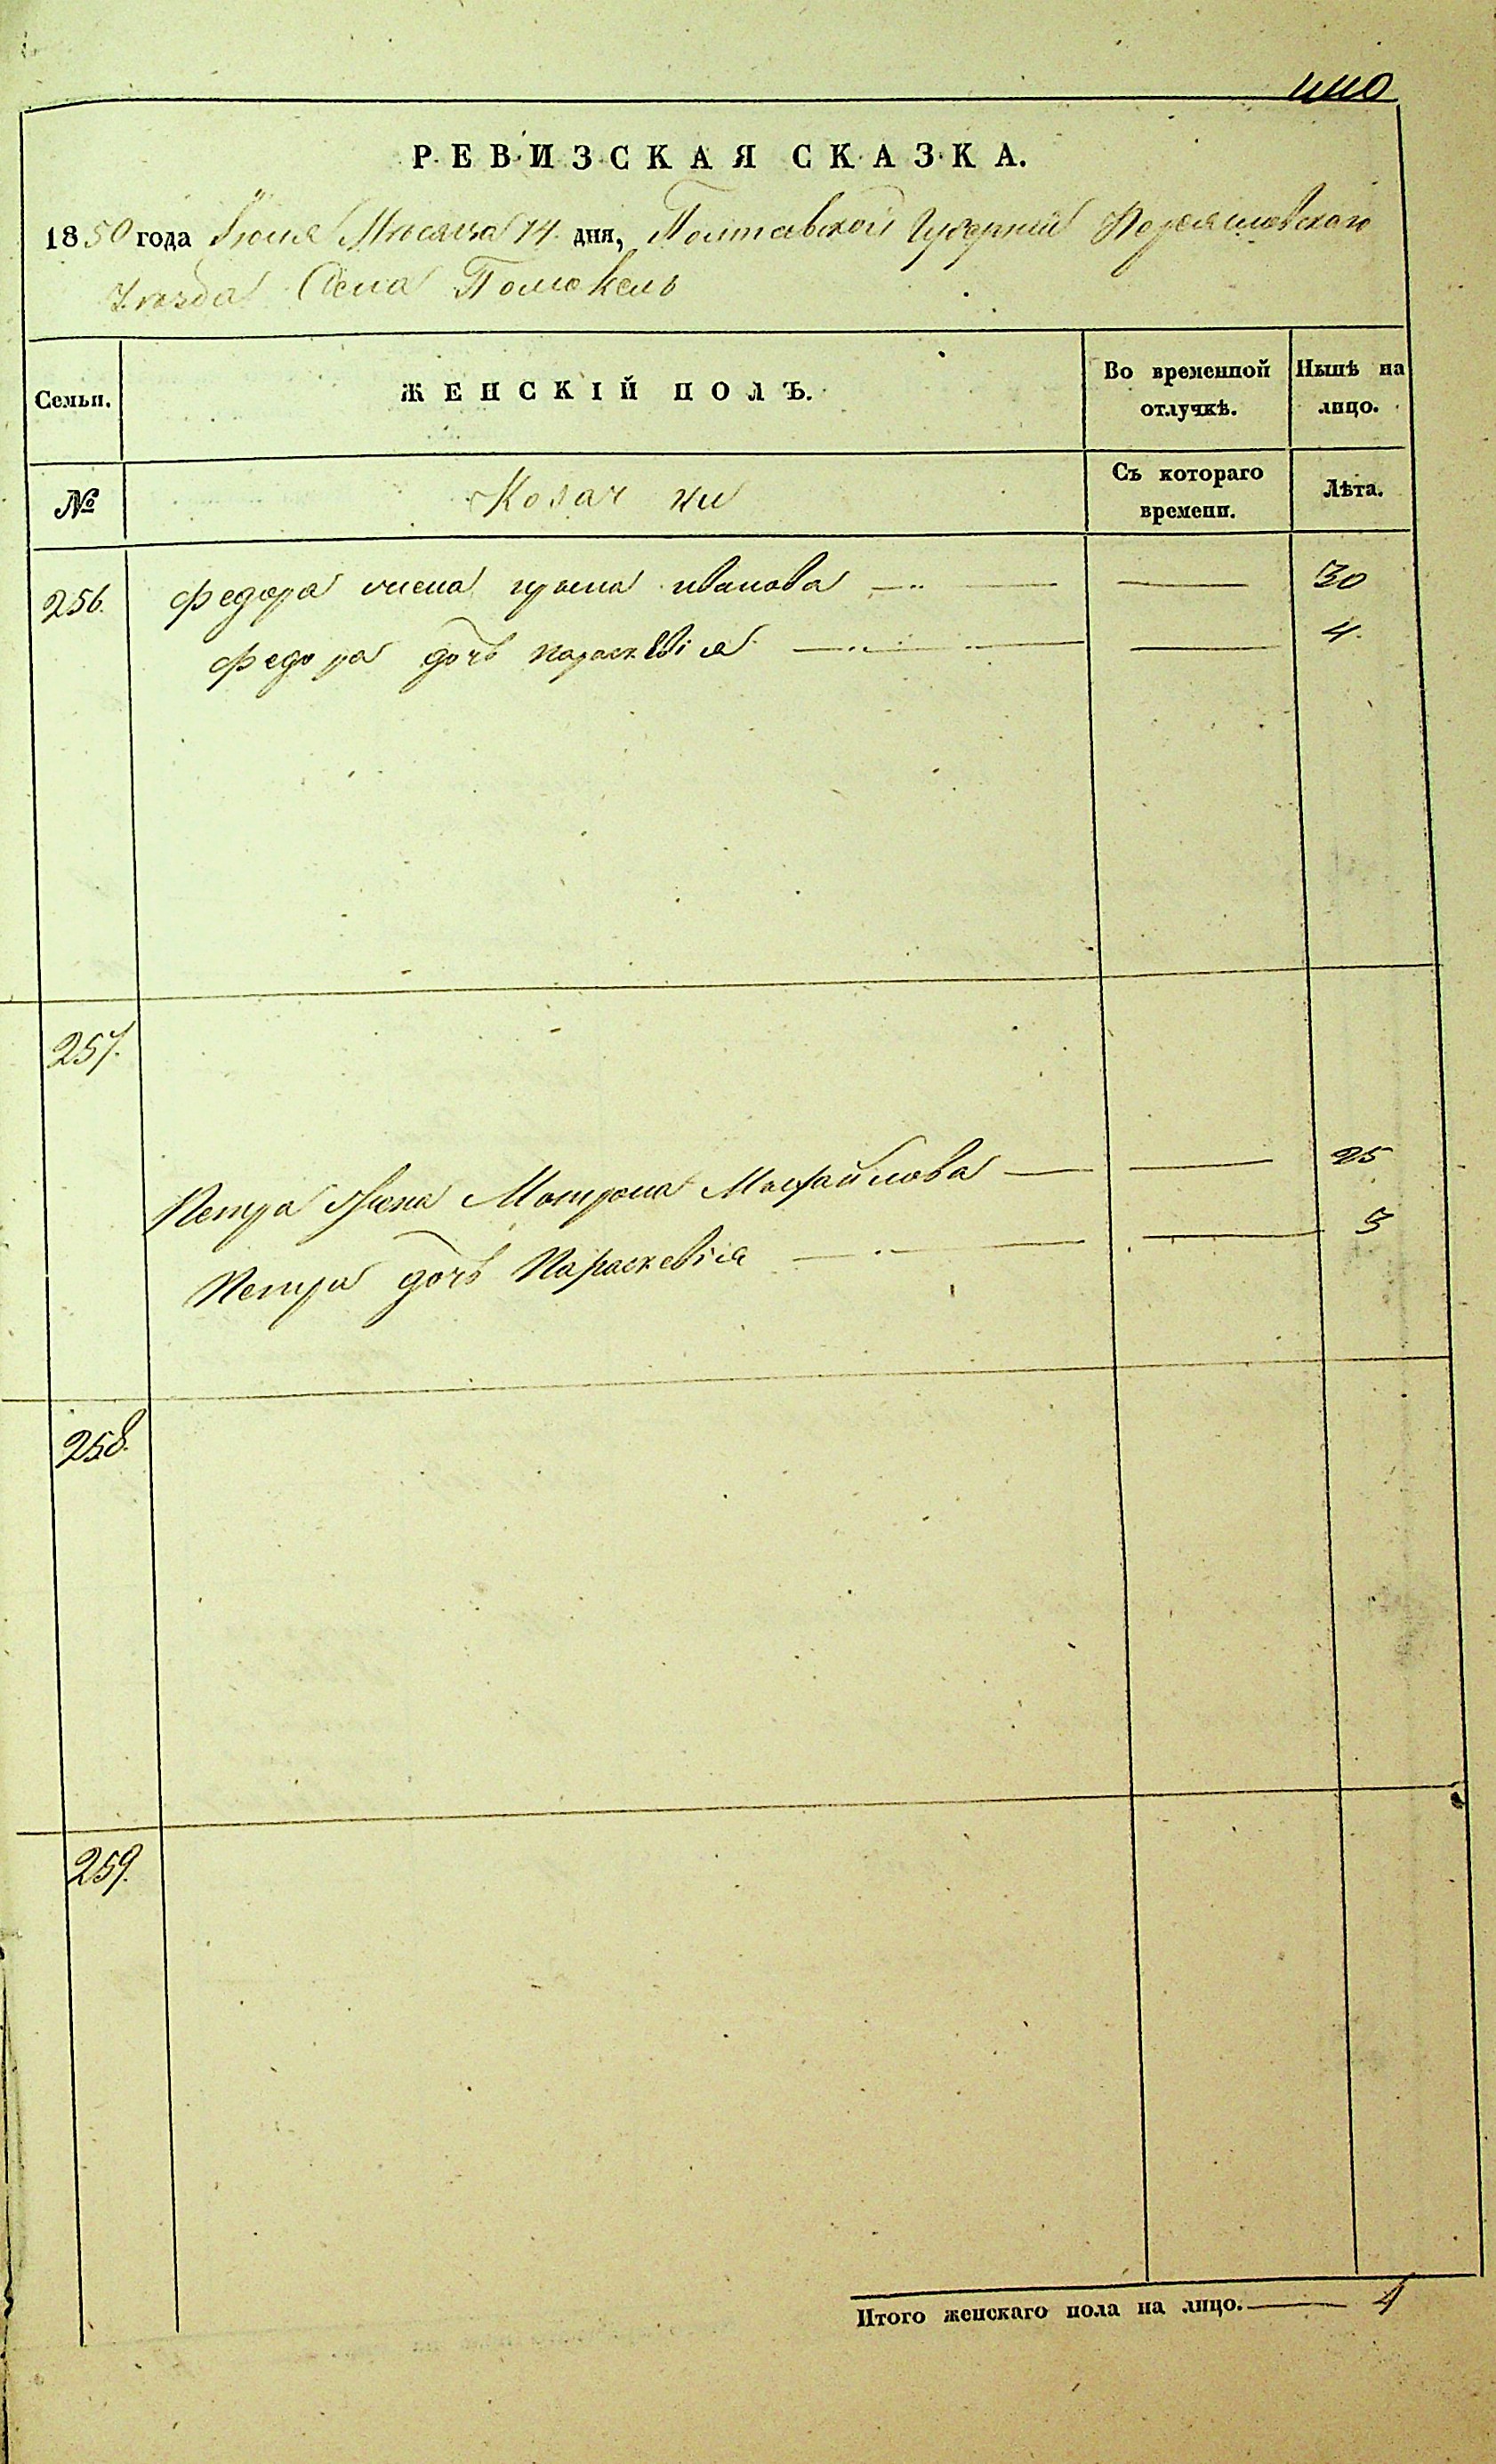 РЕВИЗСКАЯ СКАЗКА.
1850 года Іюня Мѣсяца 14 дня, Полтавской Губерніи Переяславского
Уезда Села Помокель
Семьи.
ЖЕНСКІЙ ПОЛЪ.
Во временной отлучкѣ.
Нынѣ на лицо.
№
Козачки
Съ котораго времени.
Лѣта.
256. Федора жена ивановa 30
Федора дочь параскевія 4.
257.
Петра жена Мотрона Михайлова 25
Петра дочь Параскевія 3
258.
259.
Итого женскаго пола на лицо. 4